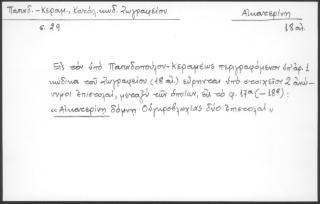 Παπαδ.-Κεραμ., Κατάλ. κωδ. Ζωγραφείου Αἰκατερίνη
σ. 29 18 αἰ.
Εἰς τὸν ὑπὸ Παπαδοπούλου-Κεραμέως περιγραφόμενον ὑπ' ἀρ. 1
κώδικα τοῦ Ζωγραφείου (18 αἰ.) εὕρηνται ὑπὸ στοιχεῖον 2 ἀνώ-
νυμοι ἐπιστολαί, μεταξὺ τῶν ὁποίων, εἰς τὸ φ. 17α (-18β) :
«Αἰκατερίνῃ δόμνῃ Οὑγκροβλαχίας δύο ἐπιστολαί»